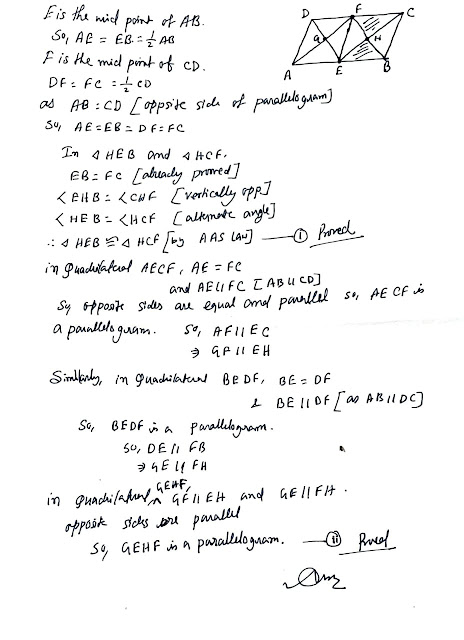 E is the mid point of AB.
So, AE = EB = 1/2 AB
F is the mid point of CD.
DF = FC = 1/2 CD
as AB = CD [opposite side of parallelogram]
So, AE = EB = DF = FC
D F C
G H
A E B
In △ HEB and △ HCF.
EB = FC [already proved]
∠EHB = ∠CHF [vertically opp]
∠HEB = ∠HCF [alternate angle]
∴ △ HEB ≅ △ HCF [by AAS law] — (i) Proved
in Quadrilateral AECF, AE = FC
and AE || FC [AB || CD]
Sy opposite sides are equal and parallel so, AECF is
a parallelogram. So, AF || EC
⇒ GF || EH
Similarly, in Quadrilateral BEDF, BE = DF
& BE || DF [as AB || DC]
So, BEDF is a parallelogram.
so, DE || FB
⇒ GE || FH
in Quadrilateral GEHF, GF || EH and GE || FH.
opposite sides are parallel
So, GEHF is a parallelogram. — (ii) Proved